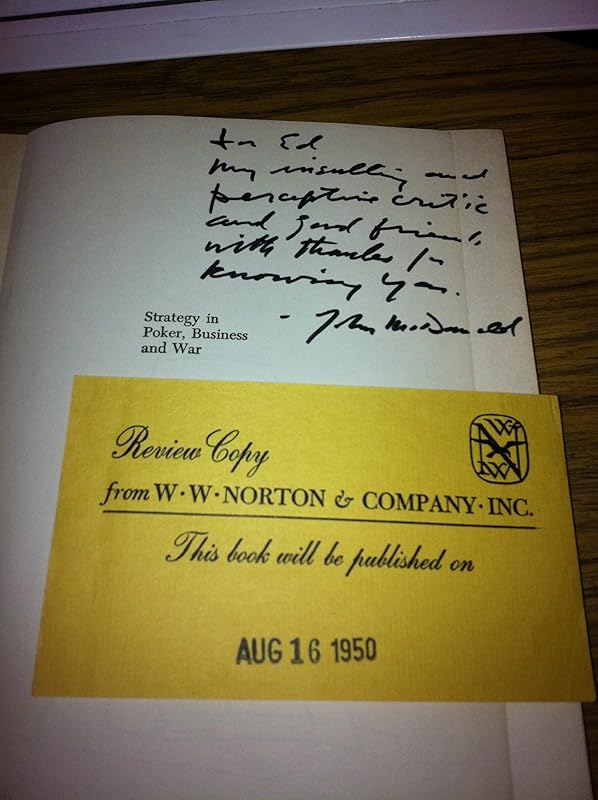 for Ed
my insulting and
perceptive critic
and good friend,
with thanks for
knowing you.
- John McDonald
Strategy in
Poker, Business
and War
Review Copy
from W·W·NORTON & COMPANY·INC.
This book will be published on
AUG 16 1950